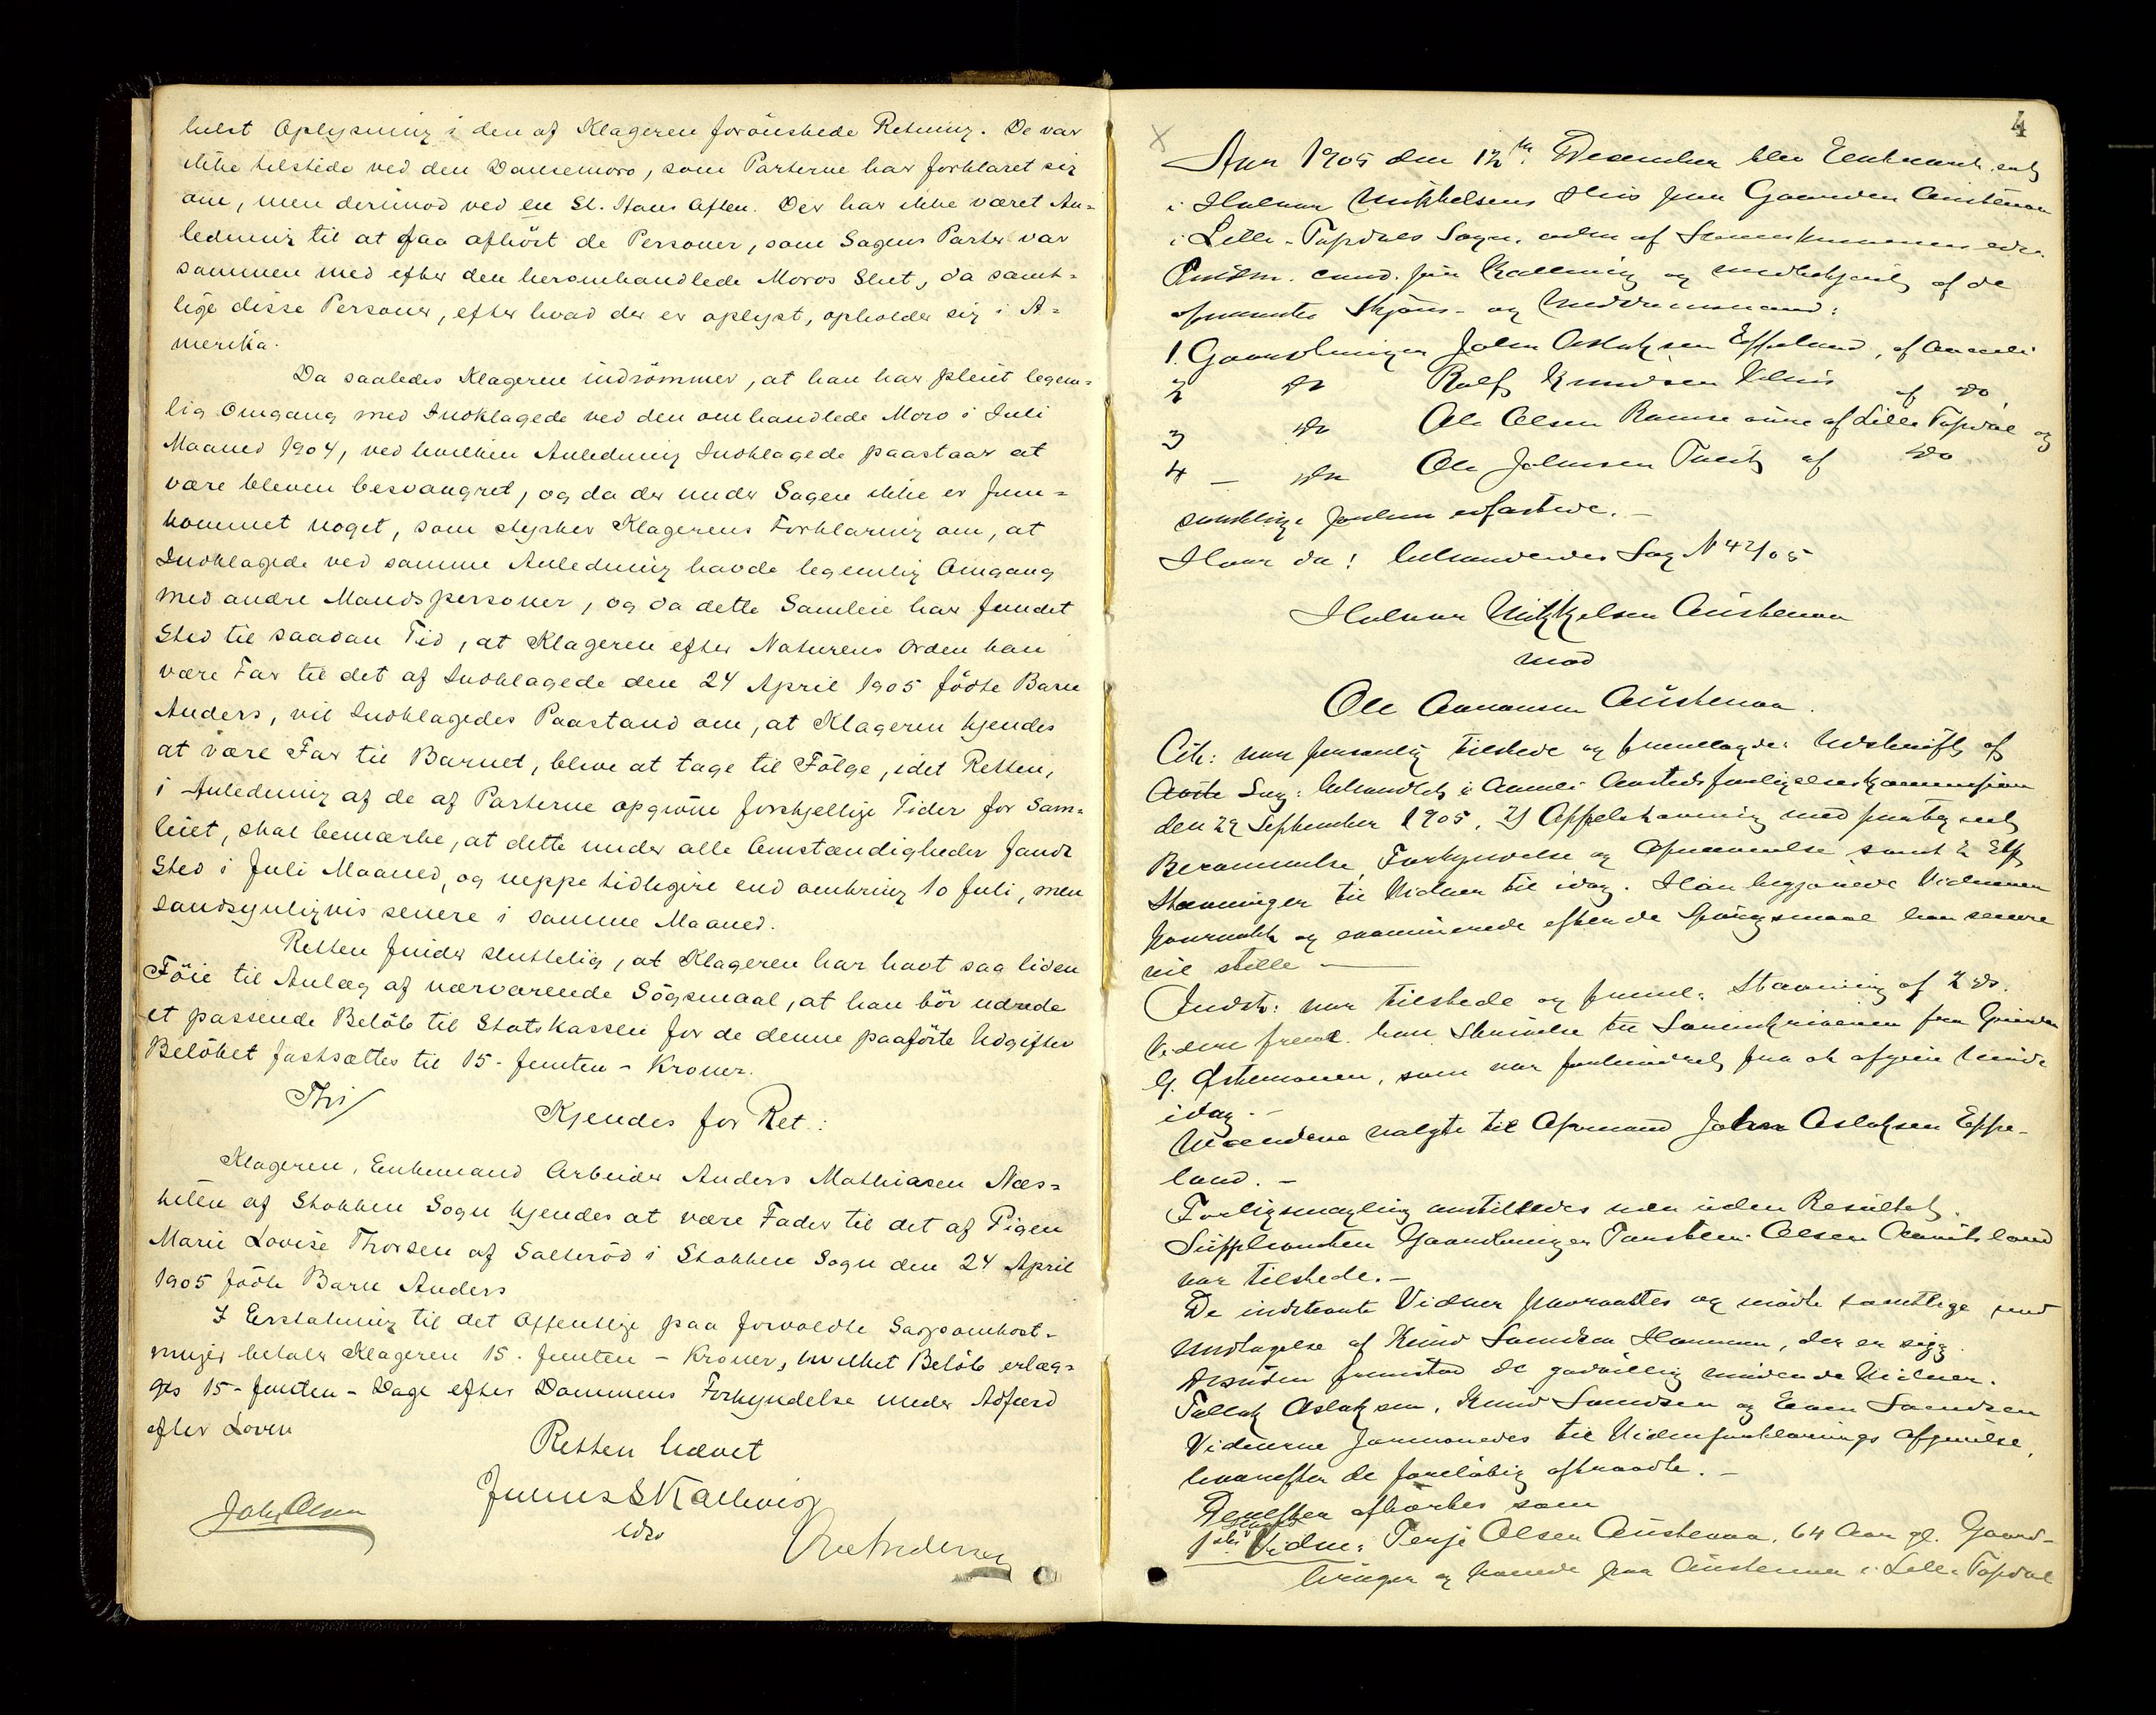 helst Oplysning i den af Klageren forönskede Retning. De var
ikke tilstede ved den Dansemoro, som Parterne har forklaret sig
om, men derimod ved en St. Hans Aften. Der har ikke været An-
ledning til at faa afhört de Personer, som Sagens Parter var
sammen med efter den heromhandlede Moros Slut, da samt-
lige disse Personer, efter hvad der er oplyst, opholder sig i A-
merika.
Da saaledes Klageren indrömmer, at han har pleiet legem-
lig Omgang med Indklagede ved den omhandlede Moro i Juli
Maaned 1904, ved hvilken Anledning Indklagede paastaar at
være bleven besvangret, og da der under Sagen ikke er frem-
kommet noget, som styrker Klagerens Forklaring om, at
Indklagede ved samme Anledning havde legemlig Omgang
med andre Mandspersoner, og da dette Samleie har fundet
Sted til saadan Tid, at Klageren efter Naturens Orden kan
være Far til det af Indklagede den 24 April 1905 födte Barn
Anders, vil Indklagedes Paastand om, at Klageren kjendes
at være Far til Barnet, blive at tage til Fölge, idet Retten,
i Anledning af de af Parterne opgivne forskjellige Tider for Sam-
leiet, skal bemærke, at dette under alle Omstændigheder fandt
Sted i Juli Maaned, og neppe tidligere end omkring 10 Juli, men
sandsynligvis senere i samme Maaned.
Retten finder sluttelig, at Klageren har havt saa liden
Föie til Anlæg af nærværende Sögsmaal, at han bör udrede
et passende Belöb til Statskassen for de denne paaförte Udgifter
Belöbet fastsættes til 15 - femten - Kroner.
Thi
Kjendes for Ret:
Klageren, Enkemand Arbeider Anders Mathiasen Næs-
kilen af Stokken Sogn kjendes at være Fader til det af Pigen
Marie Lovise Thorsen af Salteröd i Stokken Sogn den 24 April
1905 födte Barn Anders
I Erstatning til det Offentlige paa forvoldte Sagsomkost-
ninger betaler Klageren 15 - femten - Kroner, hvilket Belöb erlæg-
ges 15 - femten - Dage efter Dommens Forkyndelse under Adfærd
efter Loven
Retten hævet
Julius S Kallevig
edsv
John Olsen
4
Aar 1905 den 12te December blev Extraret sat
i Halvor Mikkelsens Hus paa Gaarden Austenaa
i Lille-Topdals Sogn, af Sorenskriverens edsv.
Fuldm. cand. jur Kallevig og medbetjent af de
opnævnte Skjöns- og Meddomsmænd:
1. Gaardbruger John Aslaksen Eppeland, af Aamli
2 do Rolf Knudsen af do
3 do Ole Olsen Ramse af Lille Topdal og
4 - do Ole Johnsen Tveit af do
samtlige forhen edfæstede. -
Hvor da! behandledes Sag N 42/05
Halvor Mikkelsen Austenaa
mod
Ole Aanonsen Austenaa.
Cit: var personlig tilstede og fremlagde: Udskrift af
Sag: behandlet i Aamli Aastedsforligelseskommission
den 29 September 1905, 2) Appelstævning med paategnet
Berammelse, Forkyndelse og Opnævnelse samt
Stævninger til Vidner til idag. Han begjærede Vidnerne
paaraabt og examinerede efter de Spörgsmaal han senere
vil stille
Indst: var tilstede og freml: Stævning af 2 ds.
Videre freml. han Skrivelse til Sorenskriveren fra
som var forhindret fra at afgive Vidne
idag. -
Mændene valgte til Ormand John Aslaksen Eppe-
land. -
Forligsmægling anstilledes men uden Resultat.
Suppleanten Gaardbruger Torsten Olsen
var tilstede. -
De indstevnte Vidner paaraabtes og mödte samtlige med
Undtagelse af Knud der er syg.
Desuden fremstod de godvillig mödende Vidner.
Tallak Aslaksen, Knud og Even
Vidnerne formanedes til Vidneforklarings Afgivelse,
hvorefter de foreløbig aftraadte. -
Derefter afhörtes som
1ste Vidne: Terje Olsen Austenaa, 64 Aar gl. Gaard-
bruger og boende paa Austenaa i Lille Topdal